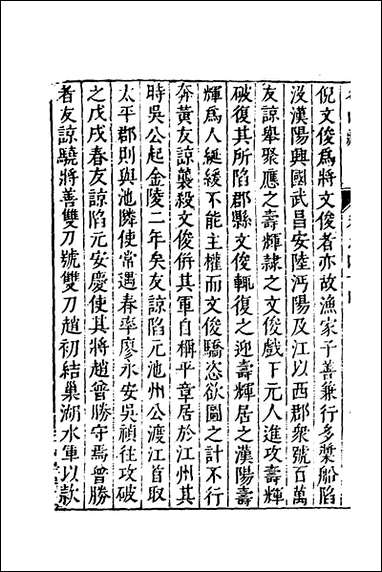 倪文俊為將文俊者亦故漁家子善兼行多槳船陷
沒漢陽興國武昌安陸沔陽及江以西郡衆號百萬
友諒舉聚應之壽輝隸之文俊戲下元人進攻壽輝
破復其所陷郡縣文俊輒復之迎壽輝居之漢陽壽
輝為人綎緩不能主權而文俊驕恣欲圖之計不行
奔黃友諒襲殺文俊併其軍自稱平章居於江州其
時吳公起金陵二年矣友諒陷元池州公渡江首取
太平郡則與池隣使常遇春率廖永安吳禎往攻破
之戊戌春友諒陷元安慶使其將趙普勝守焉普勝
者友諒驍將善雙刀號雙刀趙初結巢湖水軍以款